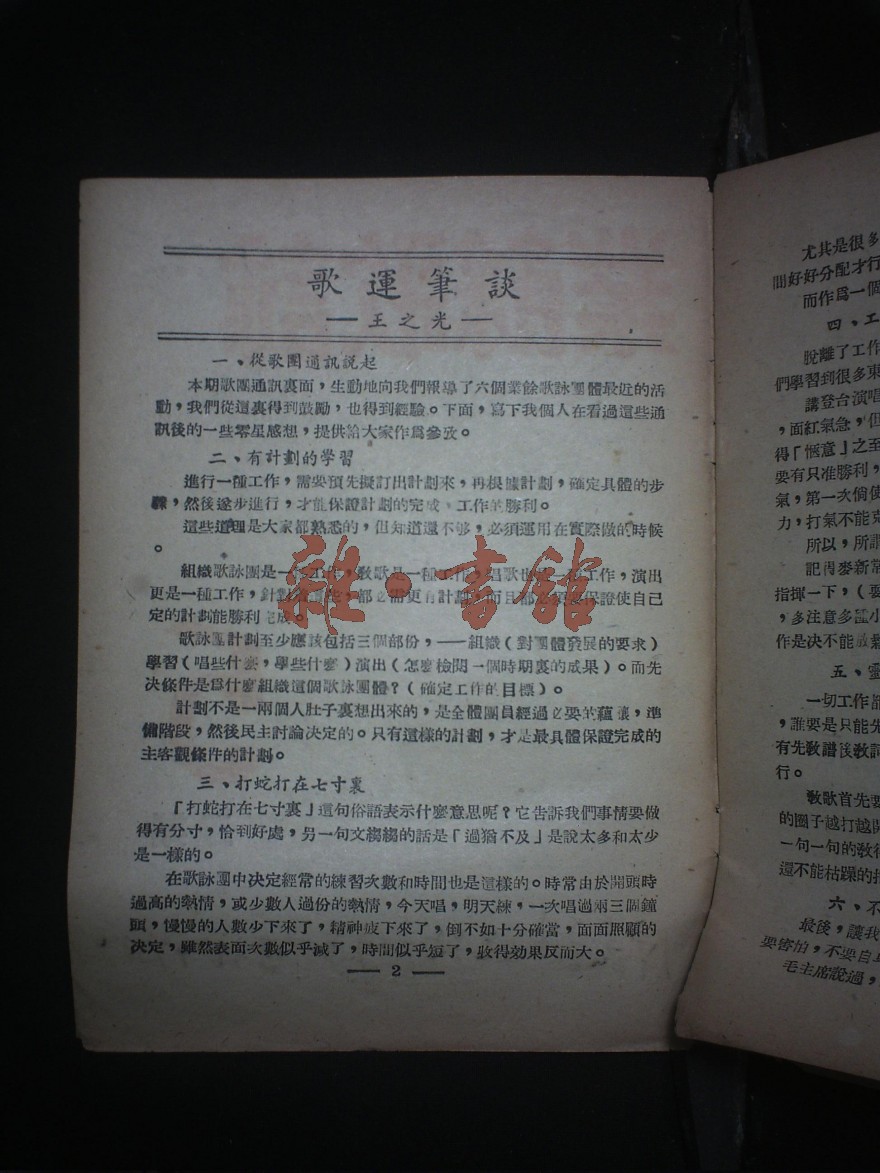 歌運筆談
—王之光—
一、從歌團通訊說起
本期歌團通訊裏面，生動地向我們報導了六個業餘歌詠團體最近的活
動，我們從這裏得到鼓勵，也得到經驗。下面，寫下我個人在看過這些通
訊後的一些零星感想，提供給大家作爲參攷。
二、有計劃的學習
進行一種工作，需要預先擬訂出計劃來，再根據計劃，確定具體的步
驟，然後逐步進行，才能保證計劃的完成，工作的勝利。
這些道理是大家都熟悉的，但知道還不够，必須運用在實際做的時候
。
組織歌詠團是一種工作，敎歌是一種工作，唱歌也是一種工作，演出
更是一種工作，針對這些，都必需更有計劃，而且都必須要保證使自己
定的計劃能勝利完成。
歌詠團計劃至少應該包括三個部份，——組織（對團體發展的要求）
學習（唱些什麽，學些什麽）演出（怎麽檢閱一個時期裏的成果）。而先
决條件是爲什麽組織這個歌詠團體？（確定工作的目標）。
計劃不是一兩個人肚子裏想出來的，是全體團員經過必要的蘊釀，準
備階段，然後民主討論决定的。只有這樣的計劃，才是最具體保證完成的
主客觀條件的計劃。
三、打蛇打在七寸裏
「打蛇打在七寸裏」這句俗語表示什麽意思呢？它告訴我們事情要做
得有分寸，恰到好處，另一句文縐縐的話是「過猶不及」是說太多和太少
是一樣的。
在歌詠團中决定經常的練習次數和時間也是這樣的。時常由於開頭時
過高的熱情，或少數人過份的熱情，今天唱，明天練，一次唱過兩三個鐘
頭，慢慢的人數少下來了，精神疲下來了，倒不如十分確當，面面照顧的
决定，雖然表面次數似乎減了，時間似乎短了，收得効果反而大。
— 2 —
尤其是很多
間好好分配才行
而作爲一個
四、工
脫離了工作
們學習到很多東
講登台演唱
，面紅氣急，但
得「愜意」之至
要有只准勝利，
氣，第一次倘使
力，打氣不能克
所以，所謂
記得麥新常
指揮一下，（要
，多注意多謹小
作是决不能放鬆
五、靈
一切工作都
，誰要是只能先
有先敎譜後敎詞
行。
敎歌首先要
的圈子越打越開
一句一句的敎得
還不能枯躁的按
六、不
最後，讓我
要害怕，不要自
毛主席說過，
雜·書館